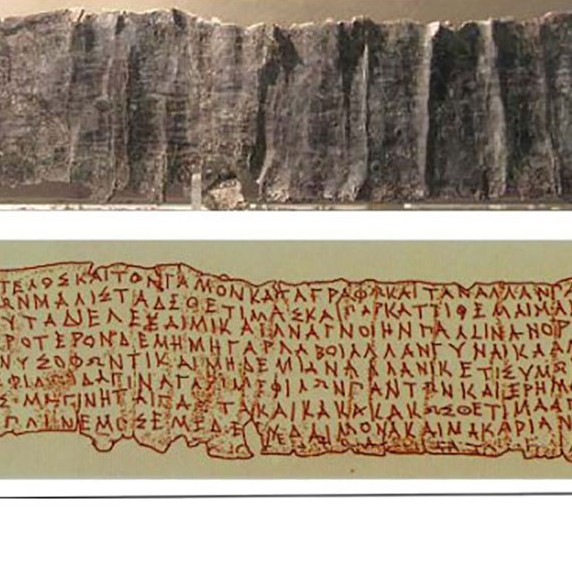 ΤΕΛΟΣΚΑΙΤΟΝΓΑΜΟΝΚΑΤΑΓΡΑΦΩΚΑΙΤΑΝΑΛΛΑΝΠ
ΩΝΜΑΛΙΣΤΑΔΕΘΕΤΙΜΑΣΚΑΙΠΑΡΚΑΤΤΙΘΕΜΑΙΜΑ
ΥΤΑΔΙΕΛΕΞΑΙΜΙΚΑΙΑΝΑΓΝΟΙΗΝΠΑΛΙΝΑΝΟΡ
ΡΟΤΕΡΟΝΔΕΜΗΜΗΓΑΡΛΑΒΟΙΑΛΛΑΝΓΥΝΑΙΚΑ
ΝΥΣΟΦΩΝΤΙΚΑΙΜΗΔΕΜΙΑΝΑΛΛΑΝΙΚΕΤΙΣΥΜΩ
ΦΙΛ ΔΑΓΙΝΑΓΑΡΙΜΕΦΙΛΩΝΠΑΝΤΩΝΚΑΙΕΡΗΜ
Σ ΜΗΓΙΝΗΤΑΙΤΑ ΤΑΚΑΙΚΑΚΑΚΑΚΩΣΘΕΤΙΜΑΑΠ
ΠΛΗΝΕΜΟΣΕΜΕΔΕ ΥΑΙΜΟΝΑΚΑΙΜΑΚΑΡΙΑΝ